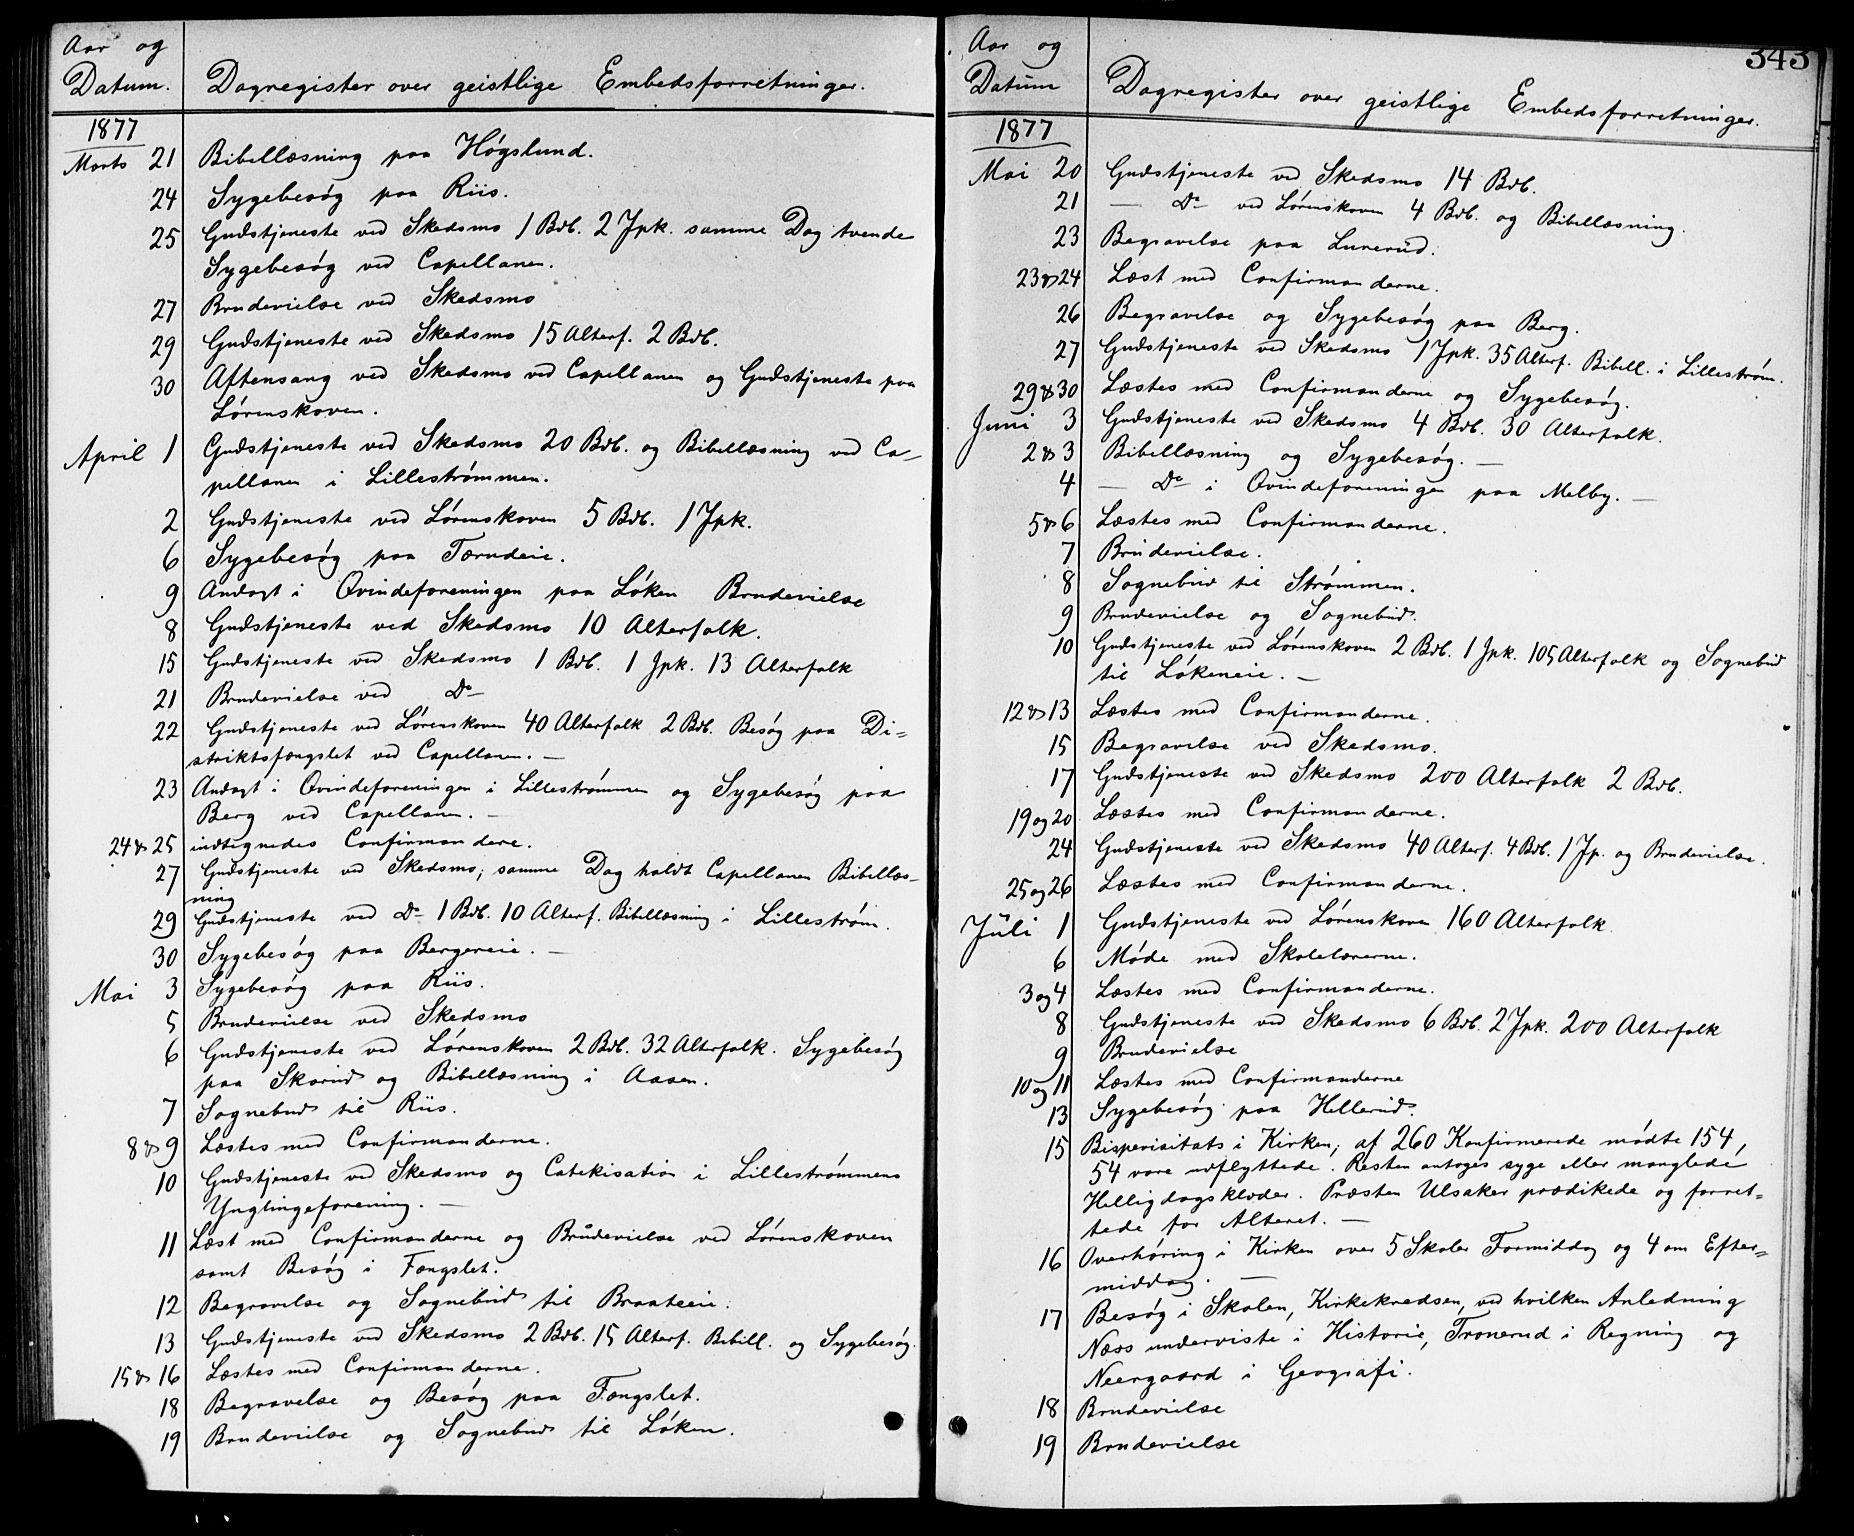 Aar og
Datum. Dagregister over geistlige Embedsforretninger.
1877
Marts 21 Bibellæsning paa Høgslund.
24 Sygebesøg paa Riis.
25 Gudstjeneste ved Skedsmo 1 Bdb. 2 Jpk. samme Dag tvende
Sygebesøg ved Capellanen.
27 Brudevielse ved Skedsmo
29 Gudstjeneste ved Skedsmo 15 Alterf. 2 Bdb.
30 Aftensang ved Skedsmo ved Capellanen og Gudstjeneste paa
Lørenskoven.
April 1 Gudstjeneste ved Skedsmo 20 Bdb. og Bibellæsning ved Ca-
pellanen i Lillestrømmen.
2 Gudstjeneste ved Lørenskoven 5 Bdb. 1 Jpk.
6 Sygebesøg paa Tærudeie.
9 Andagt i Qvindeforeningen paa Løken Brudevielse
8 Gudstjeneste ved Skedsmo 10 Alterfolk.
15 Gudstjeneste ved Skedsmo 1 Bdb. 1 Jpk. 13 Alterfolk
21 Brudevielse ved Do
22 Gudstjeneste ved Lørenskoven 40 Alterfolk 2 Bdb. Besøg paa Di-
striktsfængslet ved Capellanen. —
23 Andagt i Qvindeforeningen i Lillestrømmen og Sygebesøg paa
Berg ved Capellanen. —
24 & 25 indtegnedes Confirmandere.
27 Gudstjeneste ved Skedsmo; samme Dag holdt Capellanen Bibellæs-
ning
29 Gudstjeneste ved Do 1 Bdb. 10 Alterf. Bibellæsning i Lillestrøm.
30 Sygebesøg paa Bergereie. —
Mai 3 Sygebesøg paa Riis.
5 Brudevielse ved Skedsmo
6 Gudstjeneste ved Lørenskoven 2 Bdb. 32 Alterfolk. Sygebesøg
paa Skarud og Bibellæsning i Aasen.
7 Sognebud til Riis.
8 & 9 Læstes med Confirmanderne.
10 Gudstjeneste ved Skedsmo og Catekisation i Lillestrømmens
Ynglingeforening. —
11 Læst med Confirmanderne og Brudevielse ved Lørenskoven
samt Besøg i Fængslet.
12 Begravelse og Sognebud til Braateeie.
13 Gudstjeneste ved Skedsmo 2 Bdb. 15 Alterf. Bibell. og Sygebesøg.
15 & 16 Læstes med Confirmanderne.
18 Begravelse og Besøg paa Fængslet.
19 Brudevielse og Sognebud til Løken.
343
Aar og
Datum Dagregister over geistlige Embedsforretninger.
1877
Mai 20 Gudstjeneste ved Skedsmo 14 Bdb.
21 — Do ved Lørenskoven 4 Bdb. og Bibellæsning.
23 Begravelse paa Lunerud.
23 & 24 Læst med Confirmanderne.
26 Begravelse og Sygebesøg paa Berg.
27 Gudstjeneste ved Skedsmo 1 Jpk. 35 Alterf. Bibell. i Lillestrøm.
29 & 30 Læstes med Confirmanderne og Sygebesøg.
Juni 3 Gudstjeneste ved Skedsmo 4 Bdb. 30 Alterfolk.
2 & 3 Bibellæsning og Sygebesøg. —
4 — Do i Qvindeforeningen paa Melby. —
5 & 6 Læstes med Confirmanderne.
7 Brudevielse.
8 Sognebud til Strømmen.
9 Brudevielse og Sognebud.
10 Gudstjeneste ved Lørenskoven 2 Bdb. 1 Jpk. 105 Alterfolk og Sognebud
til Løkeneie. —
12 & 13 Læstes med Confirmanderne.
15 Begravelse ved Skedsmo.
17 Gudstjeneste ved Skedsmo 200 Alterfolk 2 Bdb.
19 og 20 Læstes med Confirmanderne.
24 Gudstjeneste ved Skedsmo 40 Alterf. 4 Bdb. 1 Jp. og Brudevielse.
25 og 26 Læstes med Confirmanderne.
Juli 1 Gudstjeneste ved Lørenskoven 160 Alterfolk
6 Møde med Skolelærerne.
3 og 4 Læstes med Confirmanderne.
8 Gudstjeneste ved Skedsmo 6 Bdb. 2 Jpk. 200 Alterfolk
9 Brudevielse
10 og 11 Læstes med Confirmanderne
13 Sygebesøg paa Hellerud.
15 Bispevisitats i Kirken; af 260 Konfirmerede mødte 154,
54 vare udflyttede. Resten antoges syge eller manglede
Helligdagsklæder. Præsten Ulsaker prædikede og forret-
tede for Alteret. —
16 Overhøring i Kirken over 5 Skoler Formiddag og 4 om Efter-
middag. —
17 Besøg i Skolen, Kirkekredsen, ved hvilken Anledning
Næss underviste i Historie, Tronerud i Regning og
Neergaard i Geografi.
18 Brudevielse
19 Brudevielse